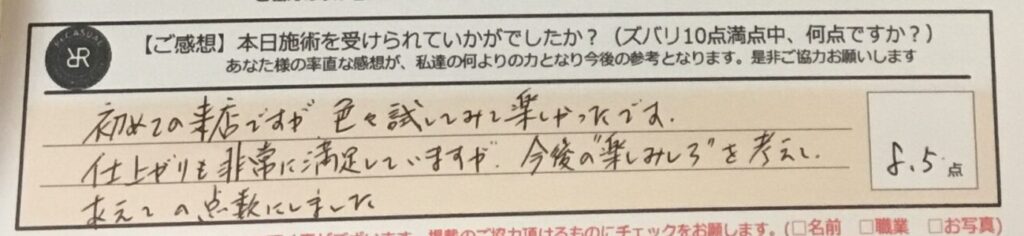 【ご感想】本日施術を受けられていかがでしたか？（ズバリ10点満点中、何点ですか？）
あなた様の率直な感想が、私達の何よりの力となり今後の参考となります。是非ご協力お願いします
初めての来店ですが 色々試してみて楽しかったです.
仕上がりも非常に満足していますが. 今後の"楽しみしろ"を考えて.
あえての点数にしました
8.5点
掲載のご協力頂けるものにチェックをお願します。(□名前 □職業 □お写真)